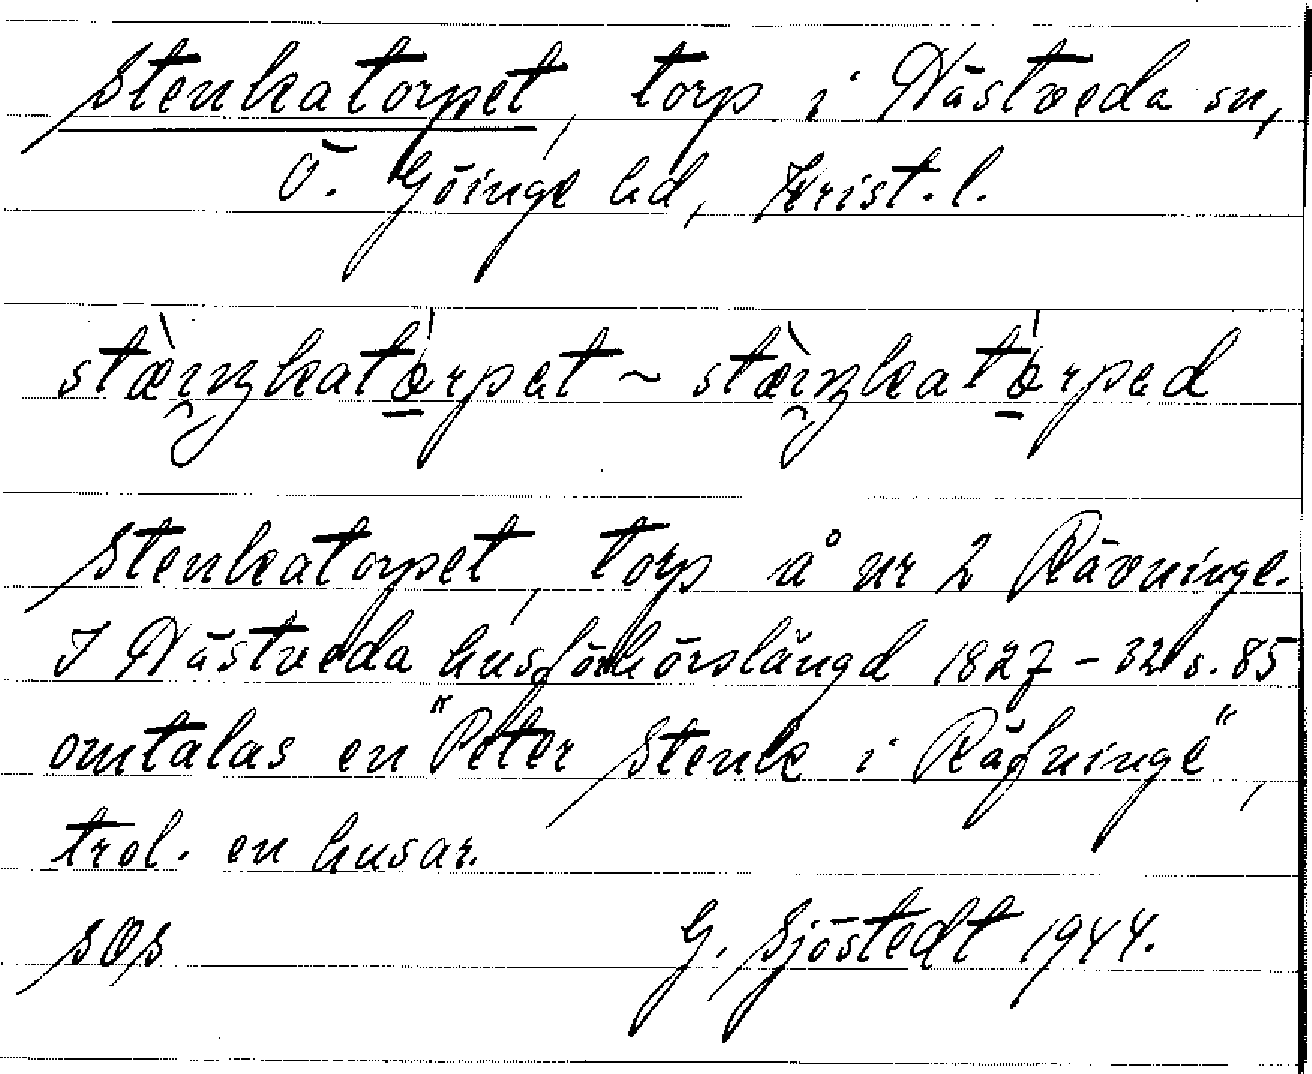 Stenkatorpet, torp i Nästveda sn,
Ö. Göinge hd, Krist. l.
Stenkatorpet, torp å nr 2 Rävninge.
I Nästveda husförhörslängd 1827-32 s. 85
omtalas en "Peter Stenk i Räfninge",
trol. en husar.
SOS G. Sjöstedt 1944.